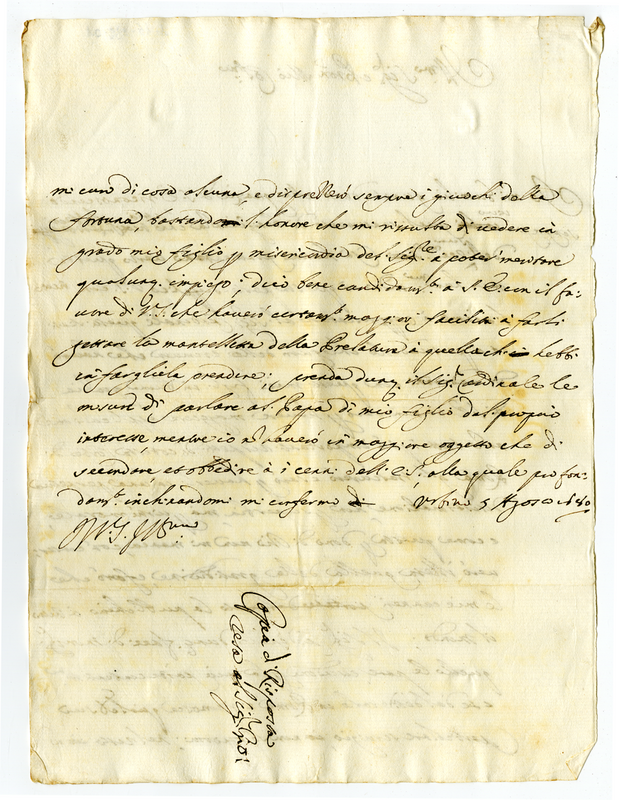 mi curo di cosa alcuna, e disprezzerò sempre i giuochi della
fortuna, bastandomi l'honore che mi risulta di vedere in
grado mio figlio p misericordia del Sig.re à poter meritare
qualunq. impiego; dico bene candidam.te à S.E. con il fa-
vore di V.S. che haverò certam.te maggior facilità à farli
gettare la mantelletta della Prelatura à quella ch' hebbi
in fargliela prendere; prenda dunq. il Sig.r Cardinale le
misure di parlare al Papa di mio figlio dal proprio
interesse, mentre io nō haverò in maggiore oggetto che di
secondare, et obbedire à i cenni dell'E.S. alla quale profon-
dam.te inchinandomi mi confermo di Urbino 5 Agosto 1680
D V.S. Ill.ma
Copia di Risposta
resa al Sig.r